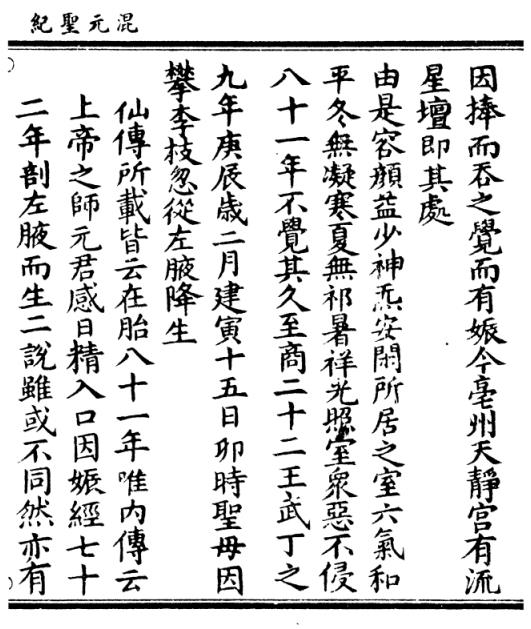 混元聖紀
因捧而吞之覺而有娠今亳州天靜宮有流
星壇即其處
由是容顏益少神炁安閑所居之室六氣和
平冬無凝寒夏無祁暑祥光照室眾惡不侵
八十一年不覺其久至商二十二王武丁之
九年庚辰歲二月建寅十五日卯時聖母因
攀李枝忽從左腋降生
仙傳所載皆云在胎八十一年唯內傳云
上帝之師元君感日精入口因娠經七十
二年剖左腋而生二說雖或不同然亦有